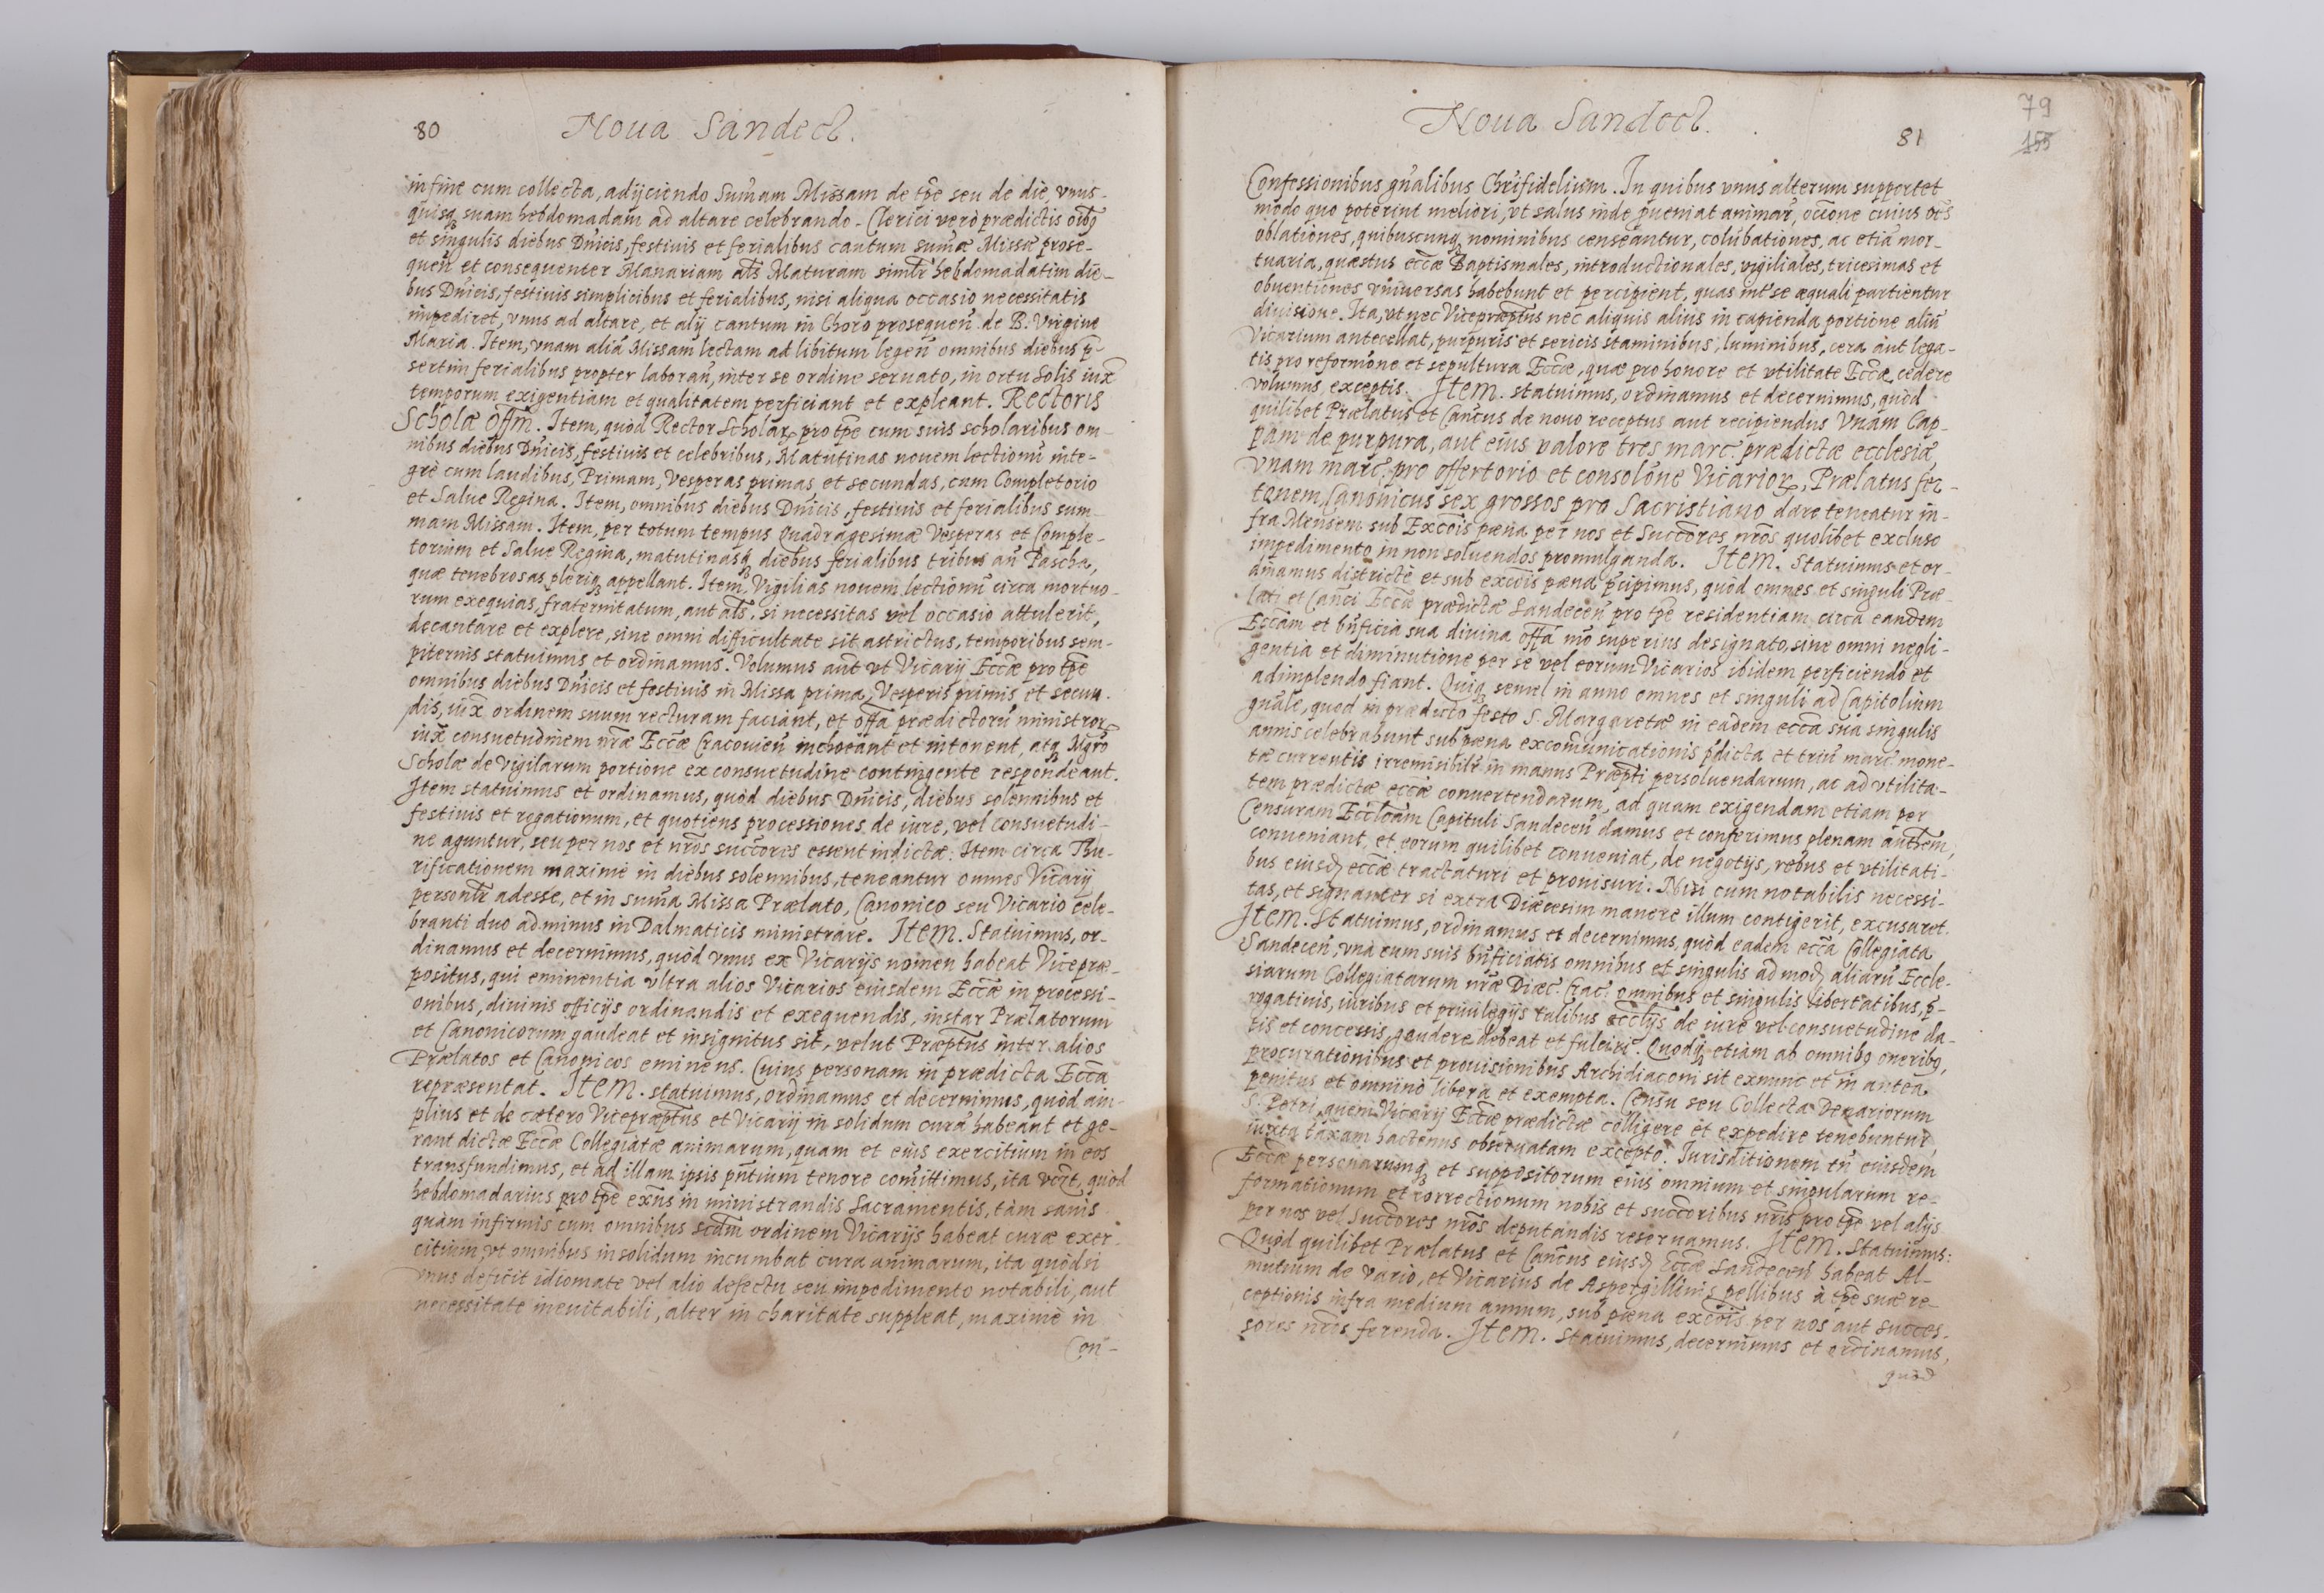 80
Noua Sandecz.
in fine cum collecta, adijciendo Sum̃am Missam de tp̃e seu de die, vnus-
quisq; suam hebdomadam ad altare celebrando. Clerici verò prædictis oĩbq
et singulis diebus Dñicis, festiuis et ferialibus cantum sum̃æ Missæ prose-
queñ et consequenter Manariam al̃s Maturam simil̃r hebdomadatim die-
bus Dñicis, festiuis simplicibus et ferialibus, nisi aliqua occasio necessitatis
impediret, vnus ad altare, et alij cantum in Choro prosequeñ de B. Virgine
Maria. Item, vnam aliã Missam lectam ad libitum legeñ omnibus diebus p̃-
sertim ferialibus propter laborañ, inter se ordine seruato, in ortu Solis iux̃
temporum exigentiam et qualitatem perficiant et expleant. Rectoris
Scholæ Off̃m. Item, quòd Rector Scholaꝝ pro tp̃e cum suis scholaribus om-
nibus diebus Dñicis, festiuis et celebribus, Matutinas nouem lectionũ inte-
grè cum laudibus, Primam, Vesperas primas et secundas, cum Completorio
et Salue Regina. Item, omnibus diebus Dñicis, festiuis et ferialibus sum-
mam Missam. Item, per totum tempus Quadragesimæ Vesperas et Comple-
torium et Salue Regina, matutinasq; diebus ferialibus tribus añ Pascha,
quæ tenebrosas pleriq; appellant. Item, Vigilias nouem lectionũ circa mortuo-
rum exequias, fraternitatum, aut al̃s, si necessitas vel occasio attulerit,
decantare et explere, sine omni difficultate sit astrictus, temporibus sem-
piternis statuimus et ordinamus. Volumus aũt vt Vicarij Ecc̃æ pro tp̃e
omnibus diebus Dñicis et festiuis in Missa prima, Vesperis primis et secun-
dis, iux̃ ordinem suum recturam faciant, et off̃a prædictorũ ministroꝝ
iux̃ consuetudinem nr̃æ Ecc̃æ Cracouieñ inchoeant et intonent, atq; Mgr̃o
Scholæ de Vigiliarum portione ex consuetudine contingente respondeant.
Item statuimus et ordinamus, quòd diebus Dñicis, diebus solennibus et
festiuis et rogationum, et quotiens processiones de iure, vel consuetudi-
ne aguntur, seu per nos et nr̃os succ̃ores essent indictæ: Item circa Thu-
rificationem maximè in diebus solennibus, teneantur omnes Vicarij
personl̃r adesse, et in sum̃a Missa Prælato, Canonico seu Vicario cele-
branti duo ad minus in Dalmaticis ministrare. Item. Statuimus, or-
dinamus et decernimus, quòd vnus ex Vicarijs nomen habeat Vicepræ-
positus, qui eminentia vltra alios Vicarios eiusdem Ecc̃æ in processi-
onibus, diuinis officijs ordinandis et exequendis, instar Prælatorum
et Canonicorum gaudeat et insignitus sit, velut Præpt̃us inter alios
Prælatos et Canonicos eminens. Cuius personam in prædicta Ecc̃a
repræsentat. Item. statuimus, ordinamus et decernimus, quòd am-
plius et de cætero Vicepræpt̃us et Vicarij in solidum curã habeant et ge-
rant dictæ Ecc̃æ Collegiatæ animarum, quam et eius exercitium in eos
transfundimus, et ad illam ipsis pñtium tenore com̃ittimus, ita vot̃, quòd
hebdomadarius pro tp̃e exñs in ministrandis Sacramentis, tàm sanis
quàm infirmis cum omnibus scd̃m ordinem Vicarijs habeat curæ exer-
citium, vt omnibus in solidum incumbat cura animarum, ita quòd si
vnus deficit idiomate vel alio defectu seu impedimento notabili, aut
necessitate ineuitabili, alter in charitate suppleat, maximè in
Con-
79
155
Noua Sandecz.
81
Confessionibus gñalibus Chr̃ifidelium. In quibus vnus alterum supportet
modo quo poterint meliori, vt salus inde p̃ueniat animar̃, occ̃one cuius oẽs
oblationes, quibuscunq; nominibus censeantur, colũbationes, ac etiã mor-
tuaria, quæstus ecc̃æ Baptismales, introductionales, vigiliales, tricesimas et
obuentiones vniuersas habebunt et percipient, quas int̃ se æquali partientur
diuisione. Ita, vt nec Vicepræpt̃us nec aliquis alius in capienda portione aliũ
Vicarium antecellat, purpuris et sericis staminibus, luminibus, cera aut lega-
tis pro reform̃one et sepultura Ecc̃æ, quæ pro honore et vtilitate Ecc̃æ cedere
volumus, exceptis. Item. statuimus, ordinamus et decernimus, quòd
quilibet Prælatus et Cañcus de nouo receptus aut recipiendus Vnam Cap-
pam de purpura, aut eius valore tres marc. prædictæ ecclesiæ,
vnam marc. pro offertorio et consolõne Vicarioꝝ, Prælatus fer-
tonem, Canonicus sex grossos pro Sacristiano dare teneatur in-
fra Mensem sub Exc̃ois pæna per nos et Succ̃ores nr̃os quolibet excluso
impedimento in non soluendos promulganda. Item. Statuimus et or-
dinamus districtè et sub exc̃ois pæna p̃cipimus, quòd omnes et singuli Præ-
lati et Cañci Ecc̃æ prædictæ Sandeceñ pro tp̃e residentiam circa eandem
Ecc̃am et bñficia sua diuina off̃a mõ superius designato, sine omni negli-
gentia et diminutione per se vel eorum Vicarios ibidem perficiendo et
adimplendo fiant. Quiq; semel in anno omnes et singuli ad Capitolium
gñale, quod in prædicto festo S. Margaretæ in eadem ecc̃a sua singulis
annis celebrabunt sub pæna excom̃unicationis p̃dicta et triũ marc. mone-
tæ currentis irremisibil̃r in manus Præpt̃i persoluendarum, ac ad vtilita-
tem prædictæ ecc̃æ conuertendarum, ad quam exigendam etiam per
Censuram Eccl̃cam Capituli Sandeceñ damus et conferimus plenam autt̃em,
conueniant, et eorum quilibet conueniat, de negotijs, rebus et vtilitati-
bus eiusd; ecc̃æ tractaturi et prouisuri. Nisi cum notabilis necessi-
tas, et signanter si extra Diæcesim manere illum contigerit, excusaret.
Item. Statuimus, ordinamus et decernimus, quòd eadem ecc̃a Collegiata
Sandeceñ, vnà cum suis bñficiatis omnibus et singulis ad mod; aliarũ Eccle-
siarum Collegiatarum nr̃æ Diæc. Crac. omnibus et singulis libertatibus, p̃-
rogatiuis, iuribus et priuilegijs talibus eccl̃ijs de iure vel consuetudine da-
tis et concessis, gaudere debeat et fulciri. Quodq; etiam ab omnibq oneribq,
procurationibus et prouisionibus Archidiaconi sit exnunc et in antea
penitus et omninò libera et exempta. Censu seu Collecta Denariorum
S. Petri, quem Vicarij Ecc̃æ prædictæ colligere et expedire tenebuntur,
iuxta taxam hactenus obseruatam excepto. Iurisditionem tñ eiusdem
Ecc̃æ personarumq; et suppositorum eius omnium et singularum re-
formationum et correctionum nobis et succ̃oribus nr̃is pro tp̃e vel alijs
per nos vel Succ̃ores nr̃os deputandis reseruamus. Item. Statuimus:
Quòd quilibet Prælatus et Cañcus eiusd; Ecc̃æ Sandeceñ habeat Al-
mutium de Vario, et Vicarius de Aspergillinis pellibus à tp̃e suæ re-
ceptionis infra medium annum, sub pæna exc̃ois per nos aut succes-
sores nr̃os ferenda. Item. Statuimus, decernimus et ordinamus,
quòd